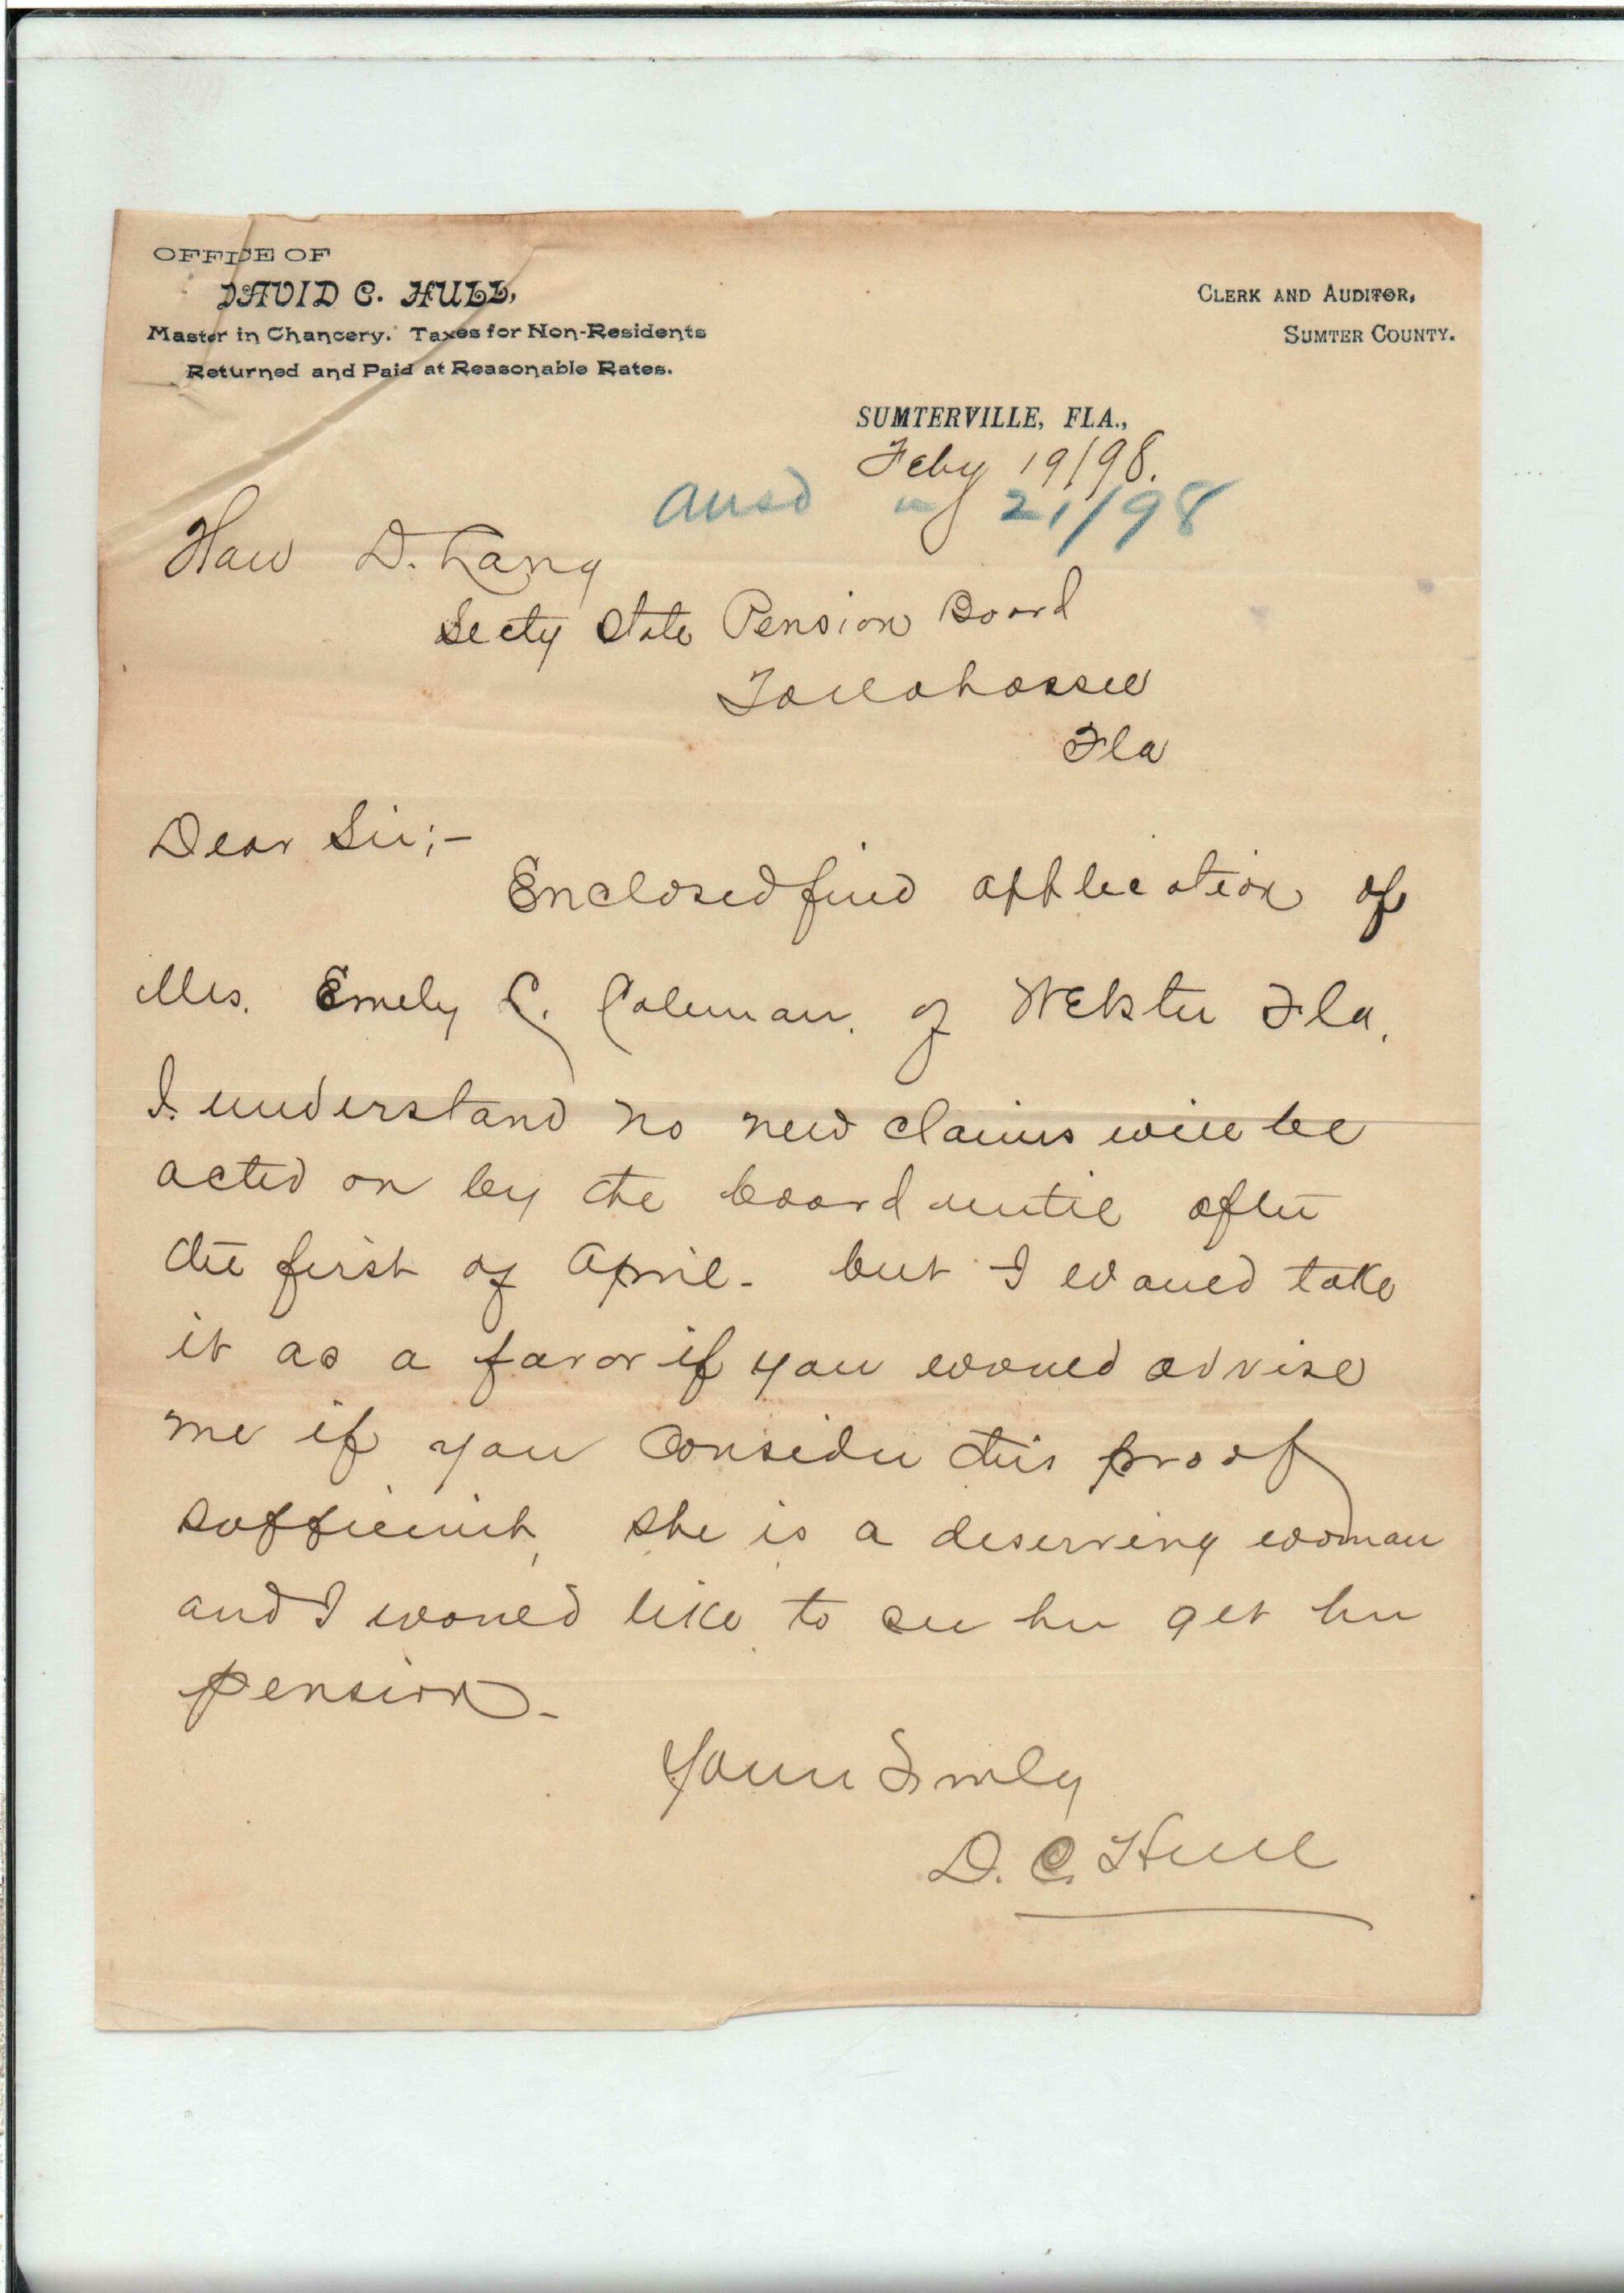 OFFICE OF
DAVID C. HULL,
Master in Chancery. Taxes for Non-Residents
Returned and Paid at Reasonable Rates.
CLERK AND AUDITOR,
SUMTER COUNTY.
SUMTERVILLE, FLA.,
Feby 19/98.
ansd 21/98
Hon D. Lang
Secty State Pension Board
Tallahassee
Fla
Dear Sir;-
Enclosed find application of
Mrs. Emely C. Coleman. of Webster Fla.
I understand no new claims will be
acted on by the board until after
the first of April. but I would take
it as a favor if you would advise
me if you consider this proof
sufficient, she is a deserving woman
and I would like to see her get her
pension.-
Yours Truly
D. C. Hull